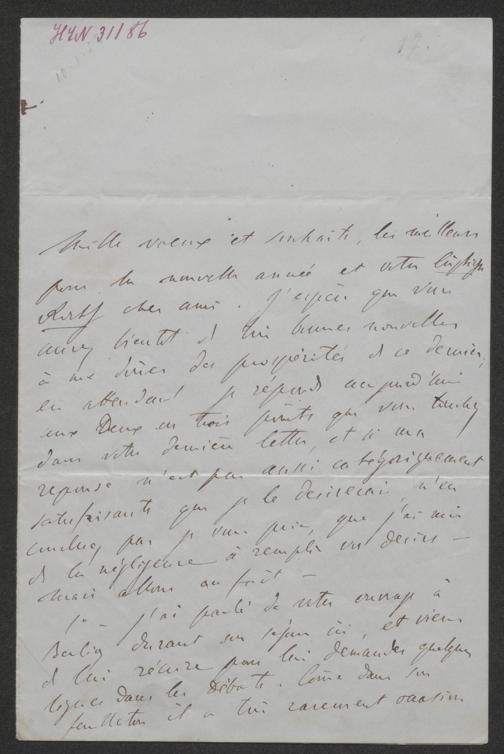 HZN 31186
17.
Mille voeux et souhaits, les meilleurs
pour la nouvelle année et votre
cher ami. J'espère que vous
aurez bientôt de très bonnes nouvelles
à me dire des prospérités de ce dernier,
en attendant je réponds aujourd'hui
aux Deux ou trois points que vous touchez
dans votre dernière lettre, et si ma
reponse n'est pas aussi catégoriquement
satisfaisante que je le desirerais, n'en
concluez pas je vous prie, que j'ai mis
de la négligence à remplir vos desirs –
mais allons au fait –
1° – J'ai parlé de votre ouvrage à
Berlioz durant son séjour ici, et viens
de lui récrire pour lui demander quelques
lignes dans les Débats. Come dans son
feuilleton il a très rarement occasion